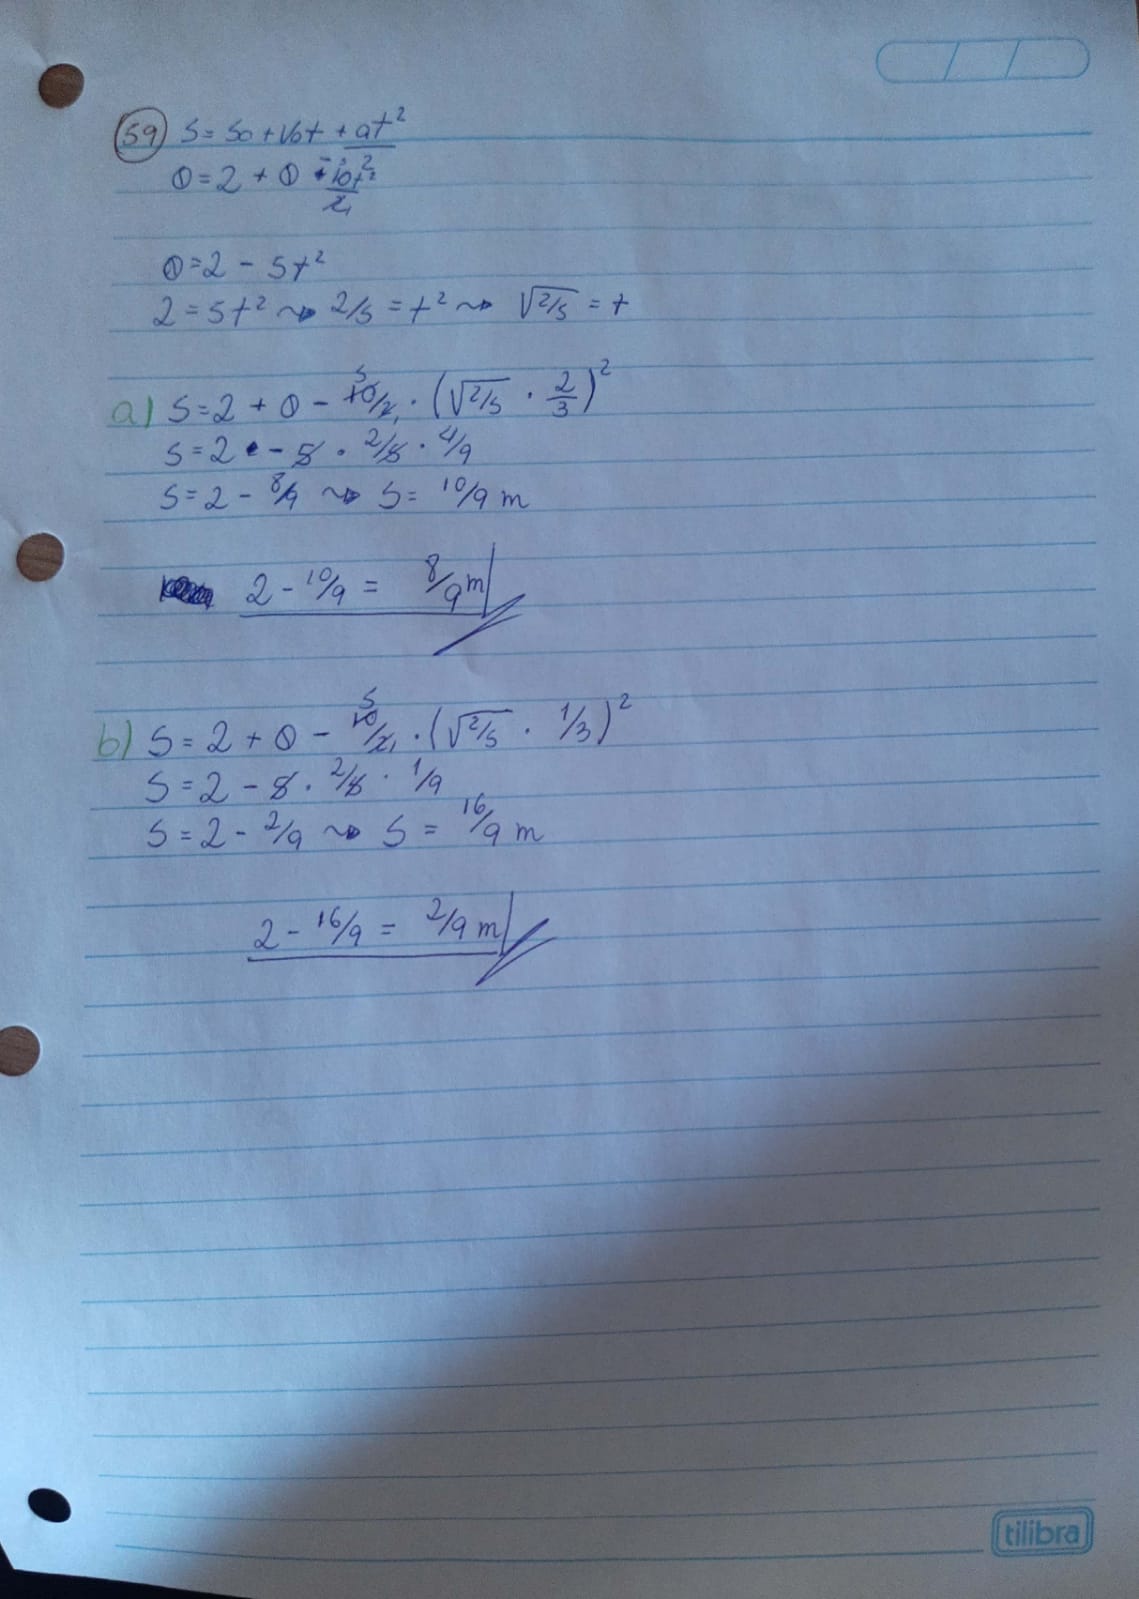 59 S = So + Vot + at²
2
0 = 2 + 0 - 10t²
2
0 = 2 - 5t²
2 = 5t² ⇝ 2/5 = t² ⇝ √2/5 = t
a) S = 2 + 0 - 10/2 · (√2/5 · 2/3)²
S = 2 - 5 · 2/5 · 4/9
S = 2 - 8/9 ⇝ S = 10/9 m
2 - 10/9 = 8/9 m
b) S = 2 + 0 - 10/2 · (√2/5 · 1/3)²
S = 2 - 5 · 2/5 · 1/9
S = 2 - 2/9 ⇝ S = 16/9 m
2 - 16/9 = 2/9 m
tilibra